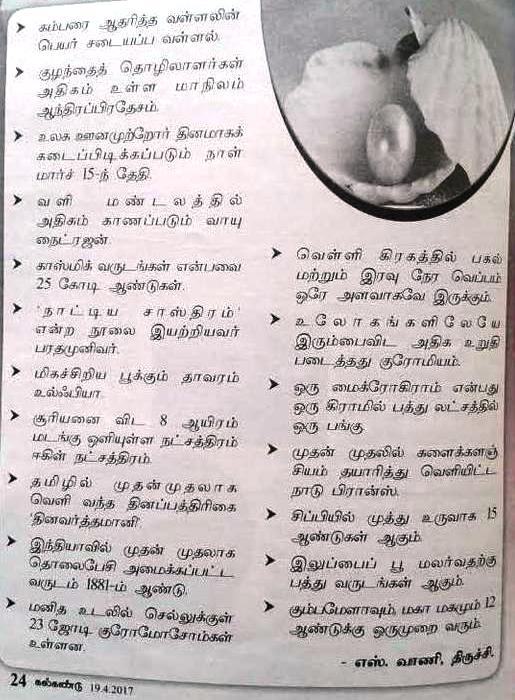 கம்பரை ஆதரித்த வள்ளலின்
பெயர் சடையப்ப வள்ளல்.
குழந்தைத் தொழிலாளர்கள்
அதிகம் உள்ள மாநிலம்
ஆந்திரப்பிரதேசம்.
உலக ஊனமுற்றோர் தினமாகக்
கடைப்பிடிக்கப்படும் நாள்
மார்ச் 15-ந் தேதி.
வளி மண்டலத்தில்
அதிகம் காணப்படும் வாயு
நைட்ரஜன்.
காஸ்மிக் வருடங்கள் என்பவை
25 கோடி ஆண்டுகள்.
'நாட்டிய சாஸ்திரம்'
என்ற நூலை இயற்றியவர்
பரதமுனிவர்.
மிகச்சிறிய பூக்கும் தாவரம்
உல்ஃபியா.
சூரியனை விட 8 ஆயிரம்
மடங்கு ஒளியுள்ள நட்சத்திரம்
ஈகிள் நட்சத்திரம்.
தமிழில் முதன்முதலாக
வெளி வந்த தினப்பத்திரிகை
'தினவர்த்தமானி'.
இந்தியாவில் முதன் முதலாக
தொலைபேசி அமைக்கப்பட்ட
வருடம் 1881-ம் ஆண்டு.
மனித உடலில் செல்லுக்குள்
23 ஜோடி குரோமோசோம்கள்
உள்ளன.
வெள்ளி கிரகத்தில் பகல்
மற்றும் இரவு நேர வெப்பம்
ஒரே அளவாகவே இருக்கும்.
உலோகங்களிலேயே
இரும்பைவிட அதிக உறுதி
படைத்தது குரோமியம்.
ஒரு மைக்ரோகிராம் என்பது
ஒரு கிராமில் பத்து லட்சத்தில்
ஒரு பங்கு.
முதன் முதலில் களைக்களஞ்
சியம் தயாரித்து வெளியிட்ட
நாடு பிரான்ஸ்.
சிப்பியில் முத்து உருவாக 15
ஆண்டுகள் ஆகும்.
இலுப்பைப் பூ மலர்வதற்கு
பத்து வருடங்கள் ஆகும்.
கும்பமேளாவும், மகா மகமும் 12
ஆண்டுக்கு ஒருமுறை வரும்.
- எஸ். வாணி, திருச்சி.
24 கல்கண்டு 19.4.2017